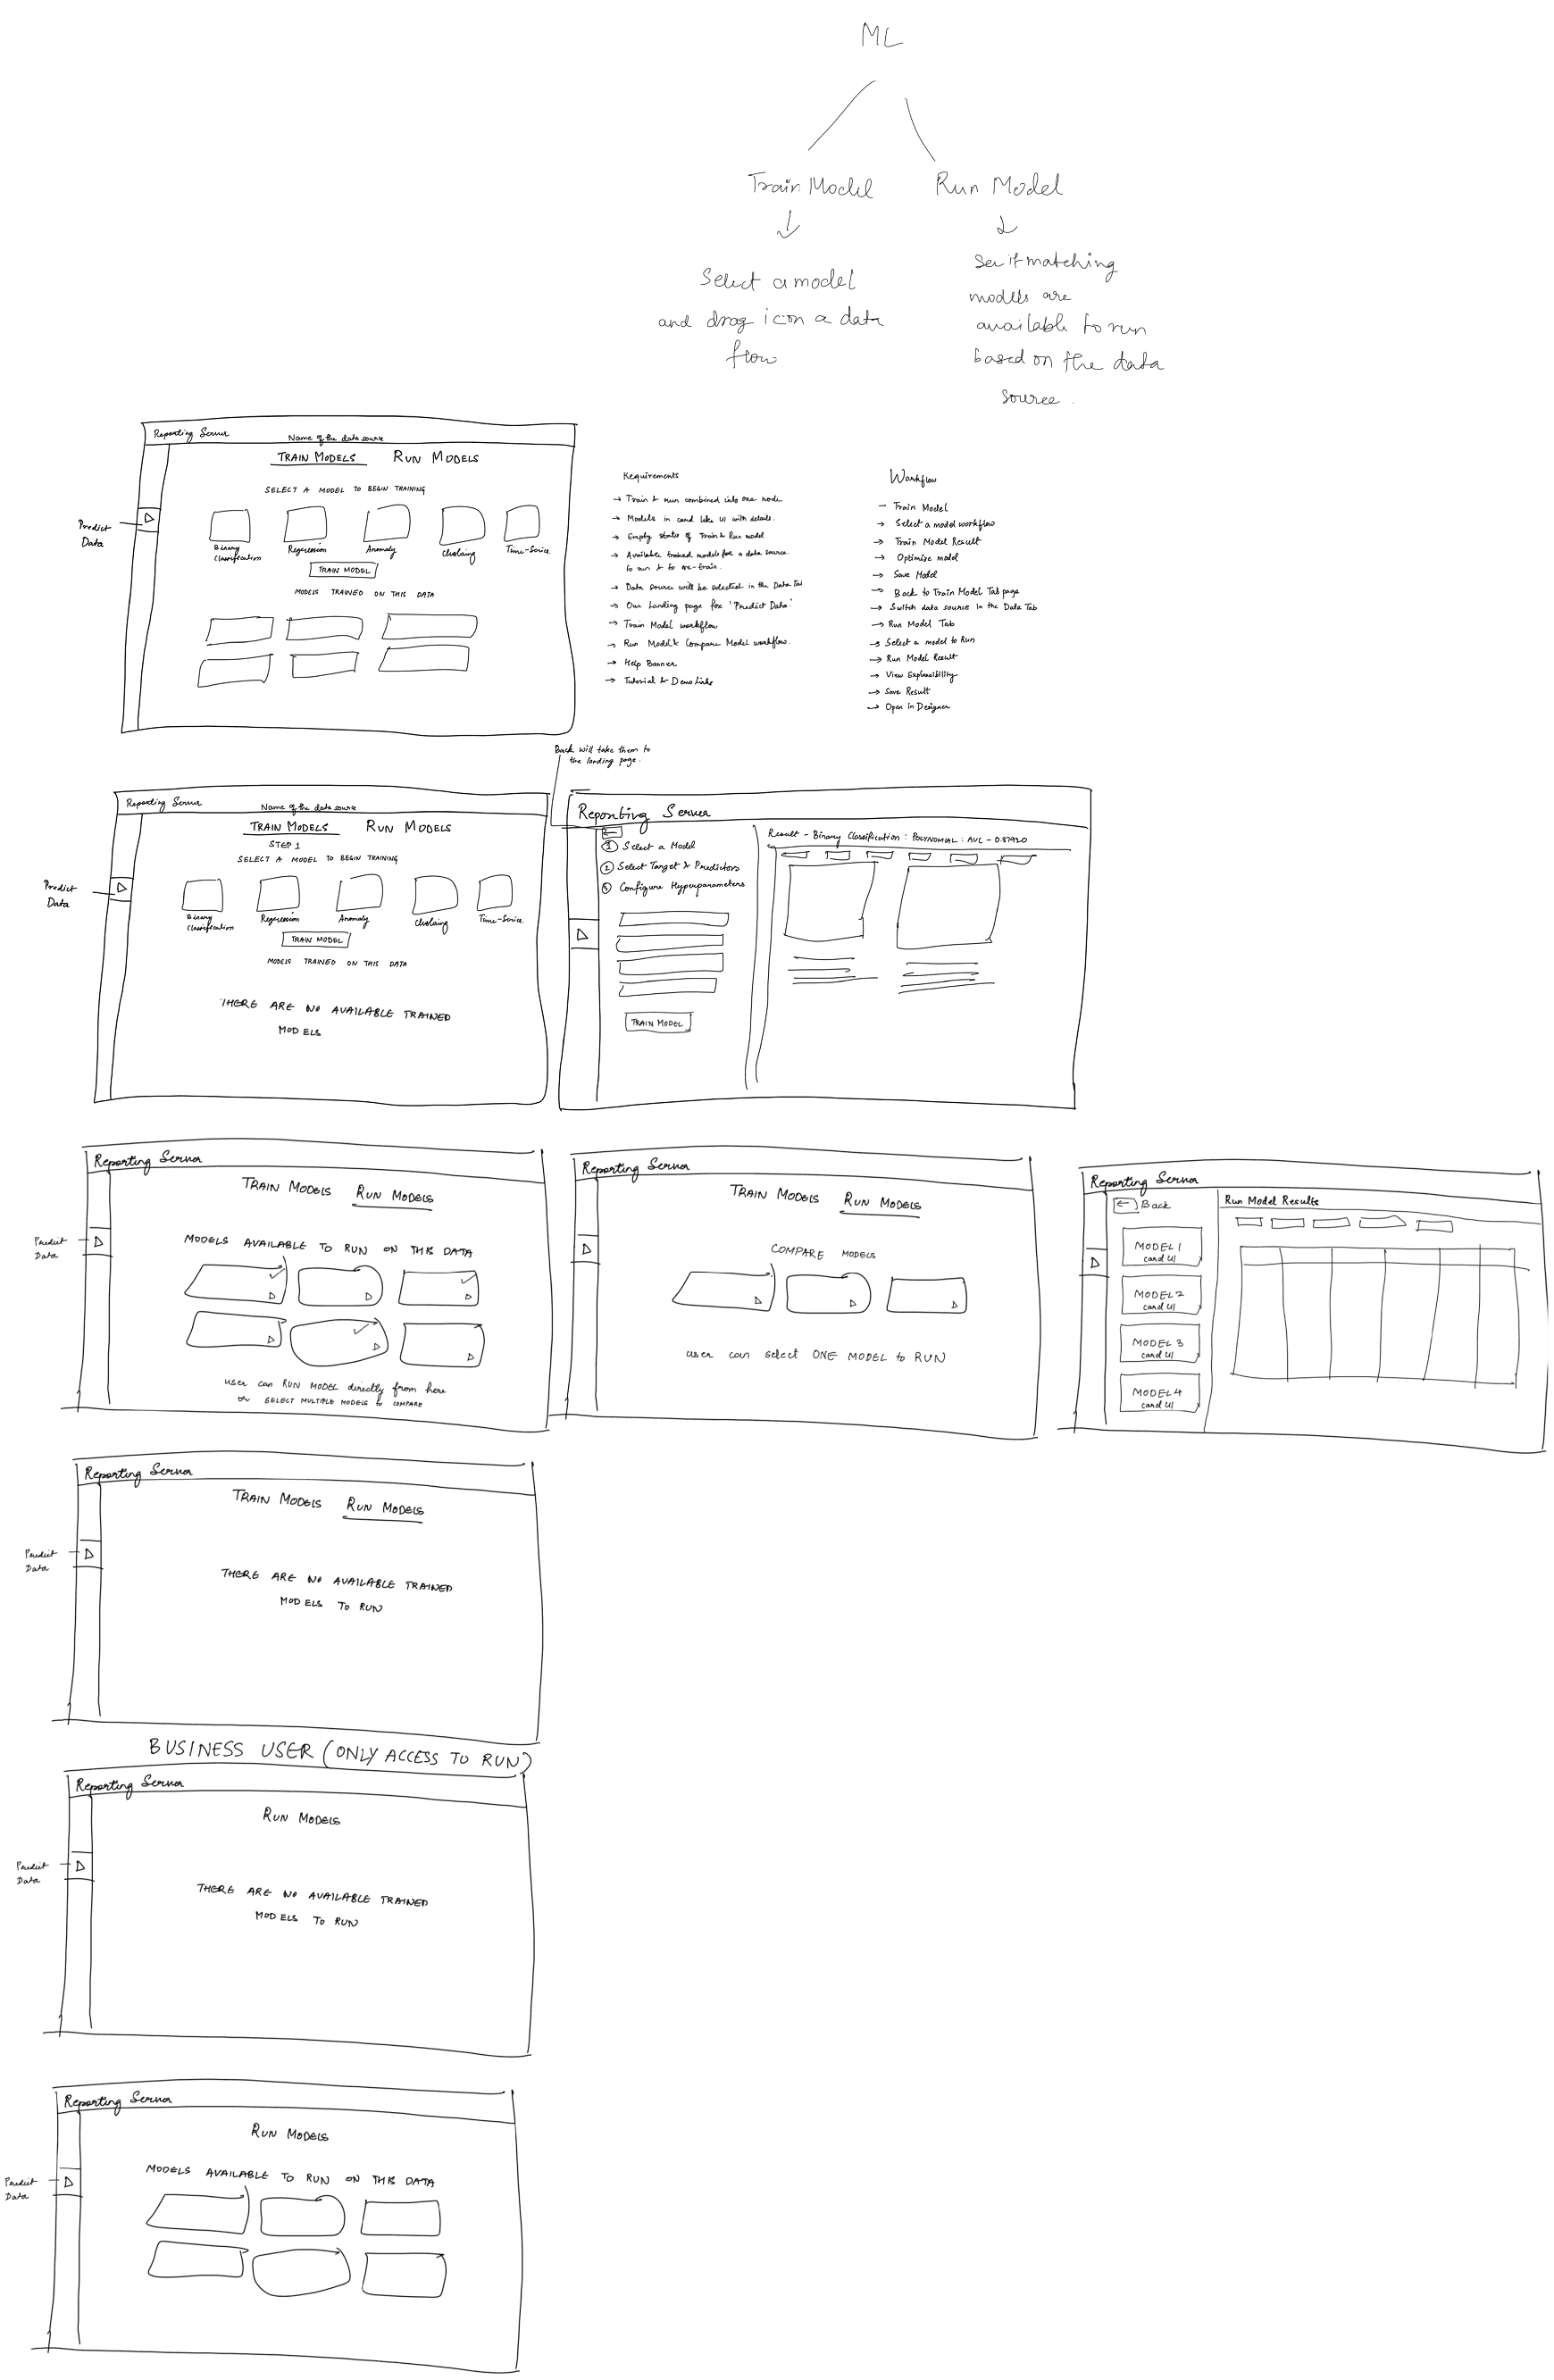 ML
Train Model
Run Model
Select a model
and drag icon a data
flow
See if matching
models are
available to run
based on the data
source.
Reporting Server
Name of the data source
TRAIN MODELS
RUN MODELS
SELECT A MODEL TO BEGIN TRAINING
Predict
Data
Binary
Classification
Regression
Anomaly
Clustering
Time-Series
TRAIN MODEL
MODELS TRAINED ON THIS DATA
Requirements
→ Train & run combined into one node
→ Models in card like UI with details.
→ Empty states of Train & Run model
→ Available trained models for a data source.
to run & to re-train.
→ Data source will be selected in the Data Tab
→ One Landing page for 'Predict Data'
→ Train Model workflow
→ Run Model & Compare Model workflow.
→ Help Banner
→ Tutorial & Demo Links
Workflow
– Train Model
→ Select a model workflow
→ Train Model Result
→ Optimize model
→ Save Model
→ Back to Train Model Tab page
→ Switch data source in the Data Tab
→ Run Model Tab
→ Select a model to Run
→ Run Model Result
→ View Explanaibility
→ Save Result
→ Open in Designer
Back will take them to
the landing page.
Reporting Server
Name of the data source
TRAIN MODELS
RUN MODELS
STEP 1
SELECT A MODEL TO BEGIN TRAINING
Predict
Data
Binary
Classification
Regression
Anomaly
Clustering
Time-Series
TRAIN MODEL
MODELS TRAINED ON THIS DATA
THERE ARE NO AVAILABLE TRAINED
MODELS
Reporting Server
← 
① Select a Model
② Select Target & Predictors
③ Configure Hyperparameters
TRAIN MODEL
Result – Binary Classification : POLYNOMIAL : AUC – 0.87920
Reporting Server
TRAIN MODELS
RUN MODELS
Predict
Data
MODELS AVAILABLE TO RUN ON THIS DATA
user can RUN MODEL directly from here
or SELECT MULTIPLE MODELS to COMPARE
Reporting Server
TRAIN MODELS
RUN MODELS
COMPARE MODELS
user can select ONE MODEL to RUN
Reporting Server
← Back
MODEL 1
card UI
MODEL 2
card UI
MODEL 3
card UI
MODEL 4
card UI
Run Model Results
Reporting Server
TRAIN MODELS
RUN MODELS
Predict
Data
THERE ARE NO AVAILABLE TRAINED
MODELS TO RUN
BUSINESS USER (ONLY ACCESS TO RUN)
Reporting Server
RUN MODELS
Predict
Data
THERE ARE NO AVAILABLE TRAINED
MODELS TO RUN
Reporting Server
RUN MODELS
Predict
Data
MODELS AVAILABLE TO RUN ON THIS DATA